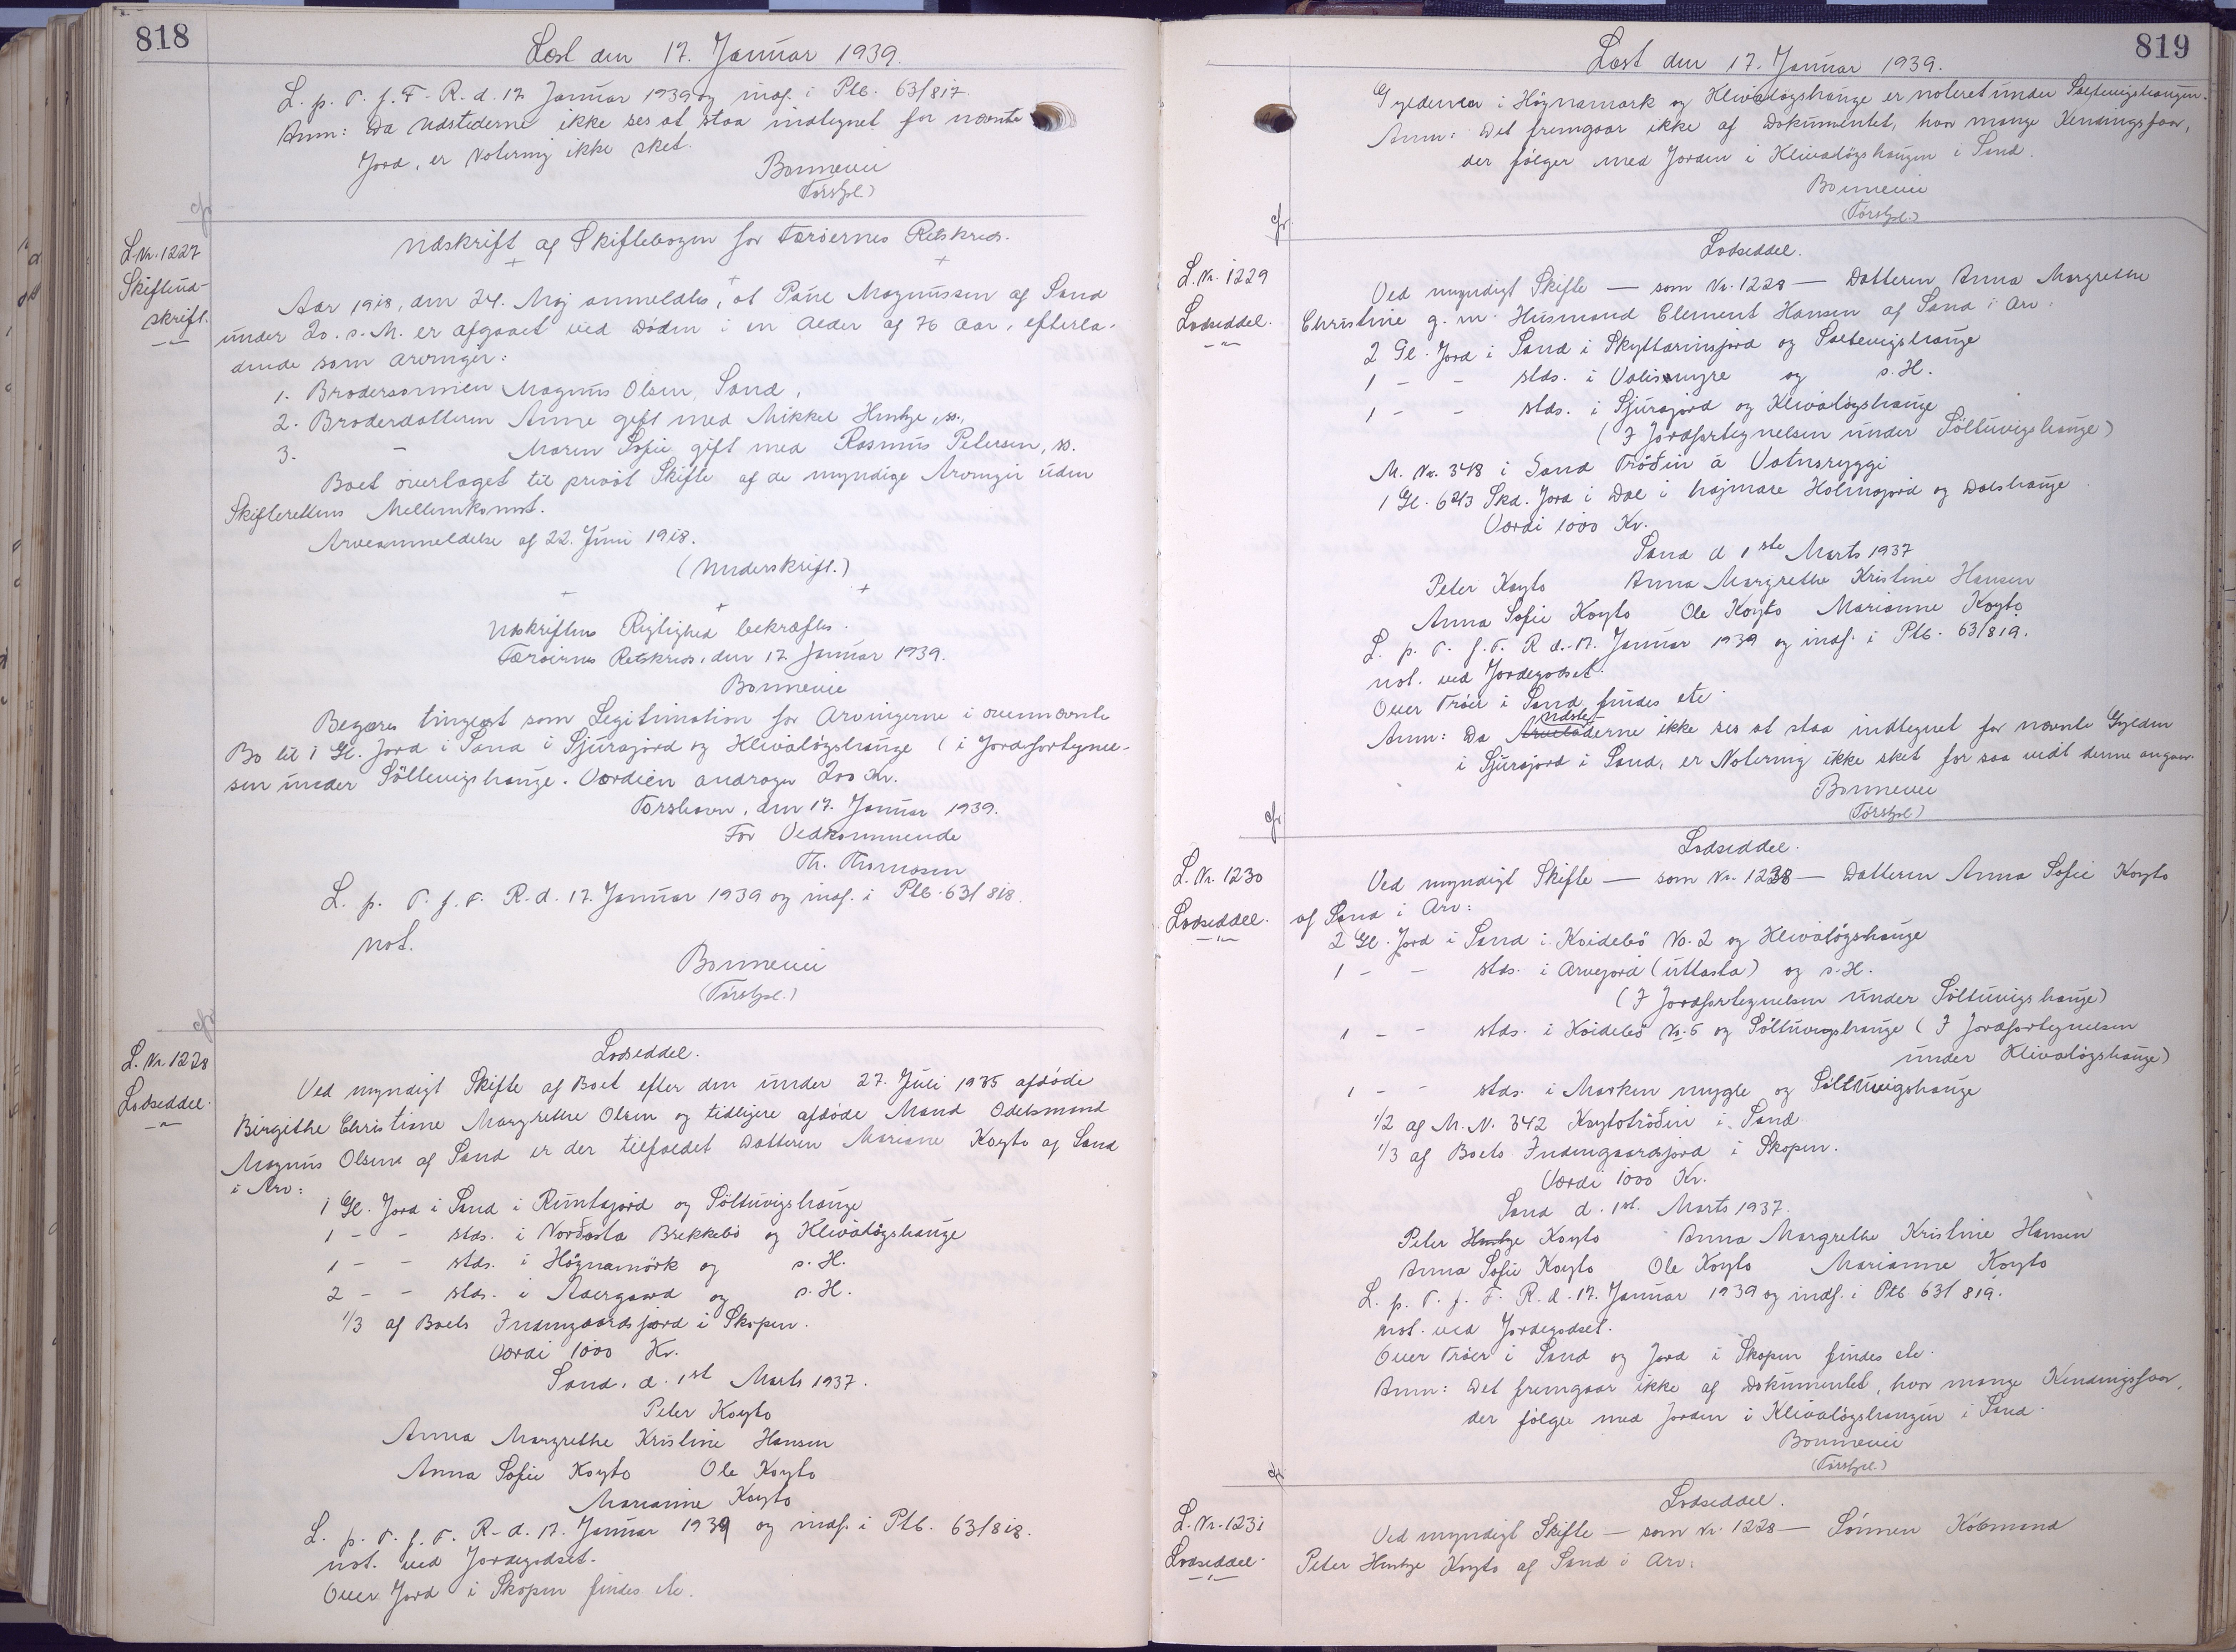 818
Læst den 17. Januar 1939.
L. p. T. f. F. R. d. 17 Januar 1939 og indf. i Ptb. 63/817.
Anm: Da Udstederne ikke ses at staa indtegnet for nævnte
Jord, er Notering ikke sket.
Bonnevie
(Förstful.)
cfr
L. Nr. 1227
Skifteud-
skrift.
Udskrift af Skiftebogen for Færøernes Retskreds.
Aar 1918, den 24. Maj anmeldtes, at Póne Magnussen af Sand
under 20. s. M. er afgaaet ved Døden i en Alder af 76 Aar, efterla-
dende som Arvinger:
1. Brodersønnen Magnus Olsen, Sand,
2. Broderdatteren Anne gift med Mikkel Hentze, ss.,
3. - Maren Sofie gift med Rasmus Petersen, ss.
Boet overtaget til privat Skifte af de myndige Arvinger uden
Skifterettens Mellemkomst.
Arveanmeldelse af 22. Juni 1918.
(Underskrift.)
Udskriftens Rigtighed bekræftes.
Færøernes Retskreds, den 17 Januar 1939.
Bonnevie
Begæres tinglæst som Legitimation for Arvingerne i ovennævnte
Bo til 1 Gl. Jord i Sand i Sjúrajørd og Klivaløgshauge (i Jordefortegnel-
sen under Söltuvigshauge. Værdien andrager 200 Kr.
Torshavn, den 17. Januar 1939.
For Vedkommende
Th. Thomsen
L. p. T. f. F. R. d. 17. Januar 1939 og indf. i Ptb. 63/818.
not.
Bonnevie
(Förstful.)
cfr
L. Nr. 1228
Lodseddel.
Lodseddel.
Ved myndigt Skifte af Boet efter den under 27. Juli 1935 afdöde
Birgithe Christiane Margrethe Olsen og tidligere afdöde Mand Odelsmand
Magnus Olsen af Sand er der tilfaldet Datteren Mariane Koyto af Sand
i Arv:
1 Gl. Jord i Sand i Runtajørd og Söltuvigshauge
1 - - stds. i Norðasta Brekkebö og Klivalögshauge
1 - - stds. i Högnamörk og s. H.
2 - - stds. i Aaergaard og s. H.
1/3 af Boets Indengaardsjord i Skopen.
Værdi 1000 Kr.
Sand, d. 1st Marts 1937.
Peter Koyto
Anna Margrethe Kristine Hansen
Anna Sofie Koyto Ole Koyto
Marianne Koyto
L. p. T. f. F. R. d. 17. Januar 1939 og indf. i Ptb. 63/818.
not. ved Jordegodset.
Over Jord i Skopen findes etc.
819
Læst den 17. Januar 1939.
Gyldenen i Högnamark og Klivalögshauge er noteret under Saltuvigshaugen.
Anm: Det fremgaar ikke af Dokumentet, hvor mange Kendingsfaar,
der fölger med Jorden i Klivalögshaugen i Sand.
Bonnevie
(Förstful.)
cfr.
L. Nr. 1229
Lodseddel.
Lodseddel.
Ved myndigt Skifte — som Nr. 1228 — Datteren Anna Margrethe
Christine g. m. Husmand Clement Hansen af Sand i Arv:
2 Gl. Jord i Sand i Skyttarinsjørd og Saltuvigshauge
1 - - stds. i Valismyre og s. H.
1 - - stds. i Sjurajørd og Klivalögshauge
(I Jordfortegnelsen under Söltuvigshauge)
M. Nr. 348 i Sand Tröðin á Vatnsryggi
1 Gl. 6 2/3 Skd. Jord i Dal i hajmare Holmajørd og Dalshauge
Værdi 1000 Kr.
Sand d 1ste Marts 1937
Peter Koyto Anna Margrethe Kristine Hansen
Anna Sofie Koyto Ole Koyto Marianne Koyto
L. p. T. f. F. R d. 17. Januar 1939 og indf. i Ptb. 63/819.
not. ved Jordegodset.
Over Tröer i Sand findes etc.
Anm: Da Udstederne ikke ses at staa indtegnet for nævnte Gylden
i Sjurajørd i Sand, er Notering ikke sket for saa vidt denne angaar.
Bonnevie
(Förstful)
cfr
L. Nr. 1230
Lodseddel.
Lodseddel.
Ved myndigt Skifte — som Nr. 1228 — Datteren Anna Sofie Koyto
af Sand i Arv:
2 Gl. Jord i Sand i Koidebö No. 2 og Klivalögshauge
1 - - stds. i Arvejord (úttasta) og s. H.
(I Jordfortegnelsen under Söltuvigshauge)
1 - - stds. i Koidebö No. 5 og Söltuvigshauge (I Jordfortegnelsen
under Klivalögshauge)
1 - - stds. i Marken mygle og Söltuvigshauge
1/2 af M. N. 342 Koytotröðin i Sand
1/3 af Boets Indengaardsjord i Skopen.
Værdi 1000 Kr.
Sand d. 1st. Marts 1937.
Peter Hentze Koyto Anna Margrethe Kristine Hansen
Anna Sofie Koyto Ole Koyto Marianne Koyto
L. p. T. f. F. R. d. 17. Januar 1939 og indf. i Ptb 63/819.
not. ved Jordegodset.
Over Tröer i Sand og Jord i Skopen findes etc.
Anm: Det fremgaar ikke af Dokumentet, hvor mange Kendingsfaar,
der fölger med Jorden i Klivalögshaugen i Sand.
Bonnevie
(Förstful.)
cfr
L. Nr. 1231
Lodseddel.
Lodseddel.
Ved myndigt Skifte — som Nr. 1228 — Sönnen Köbmand
Peter Hentze Koyto af Sand i Arv: